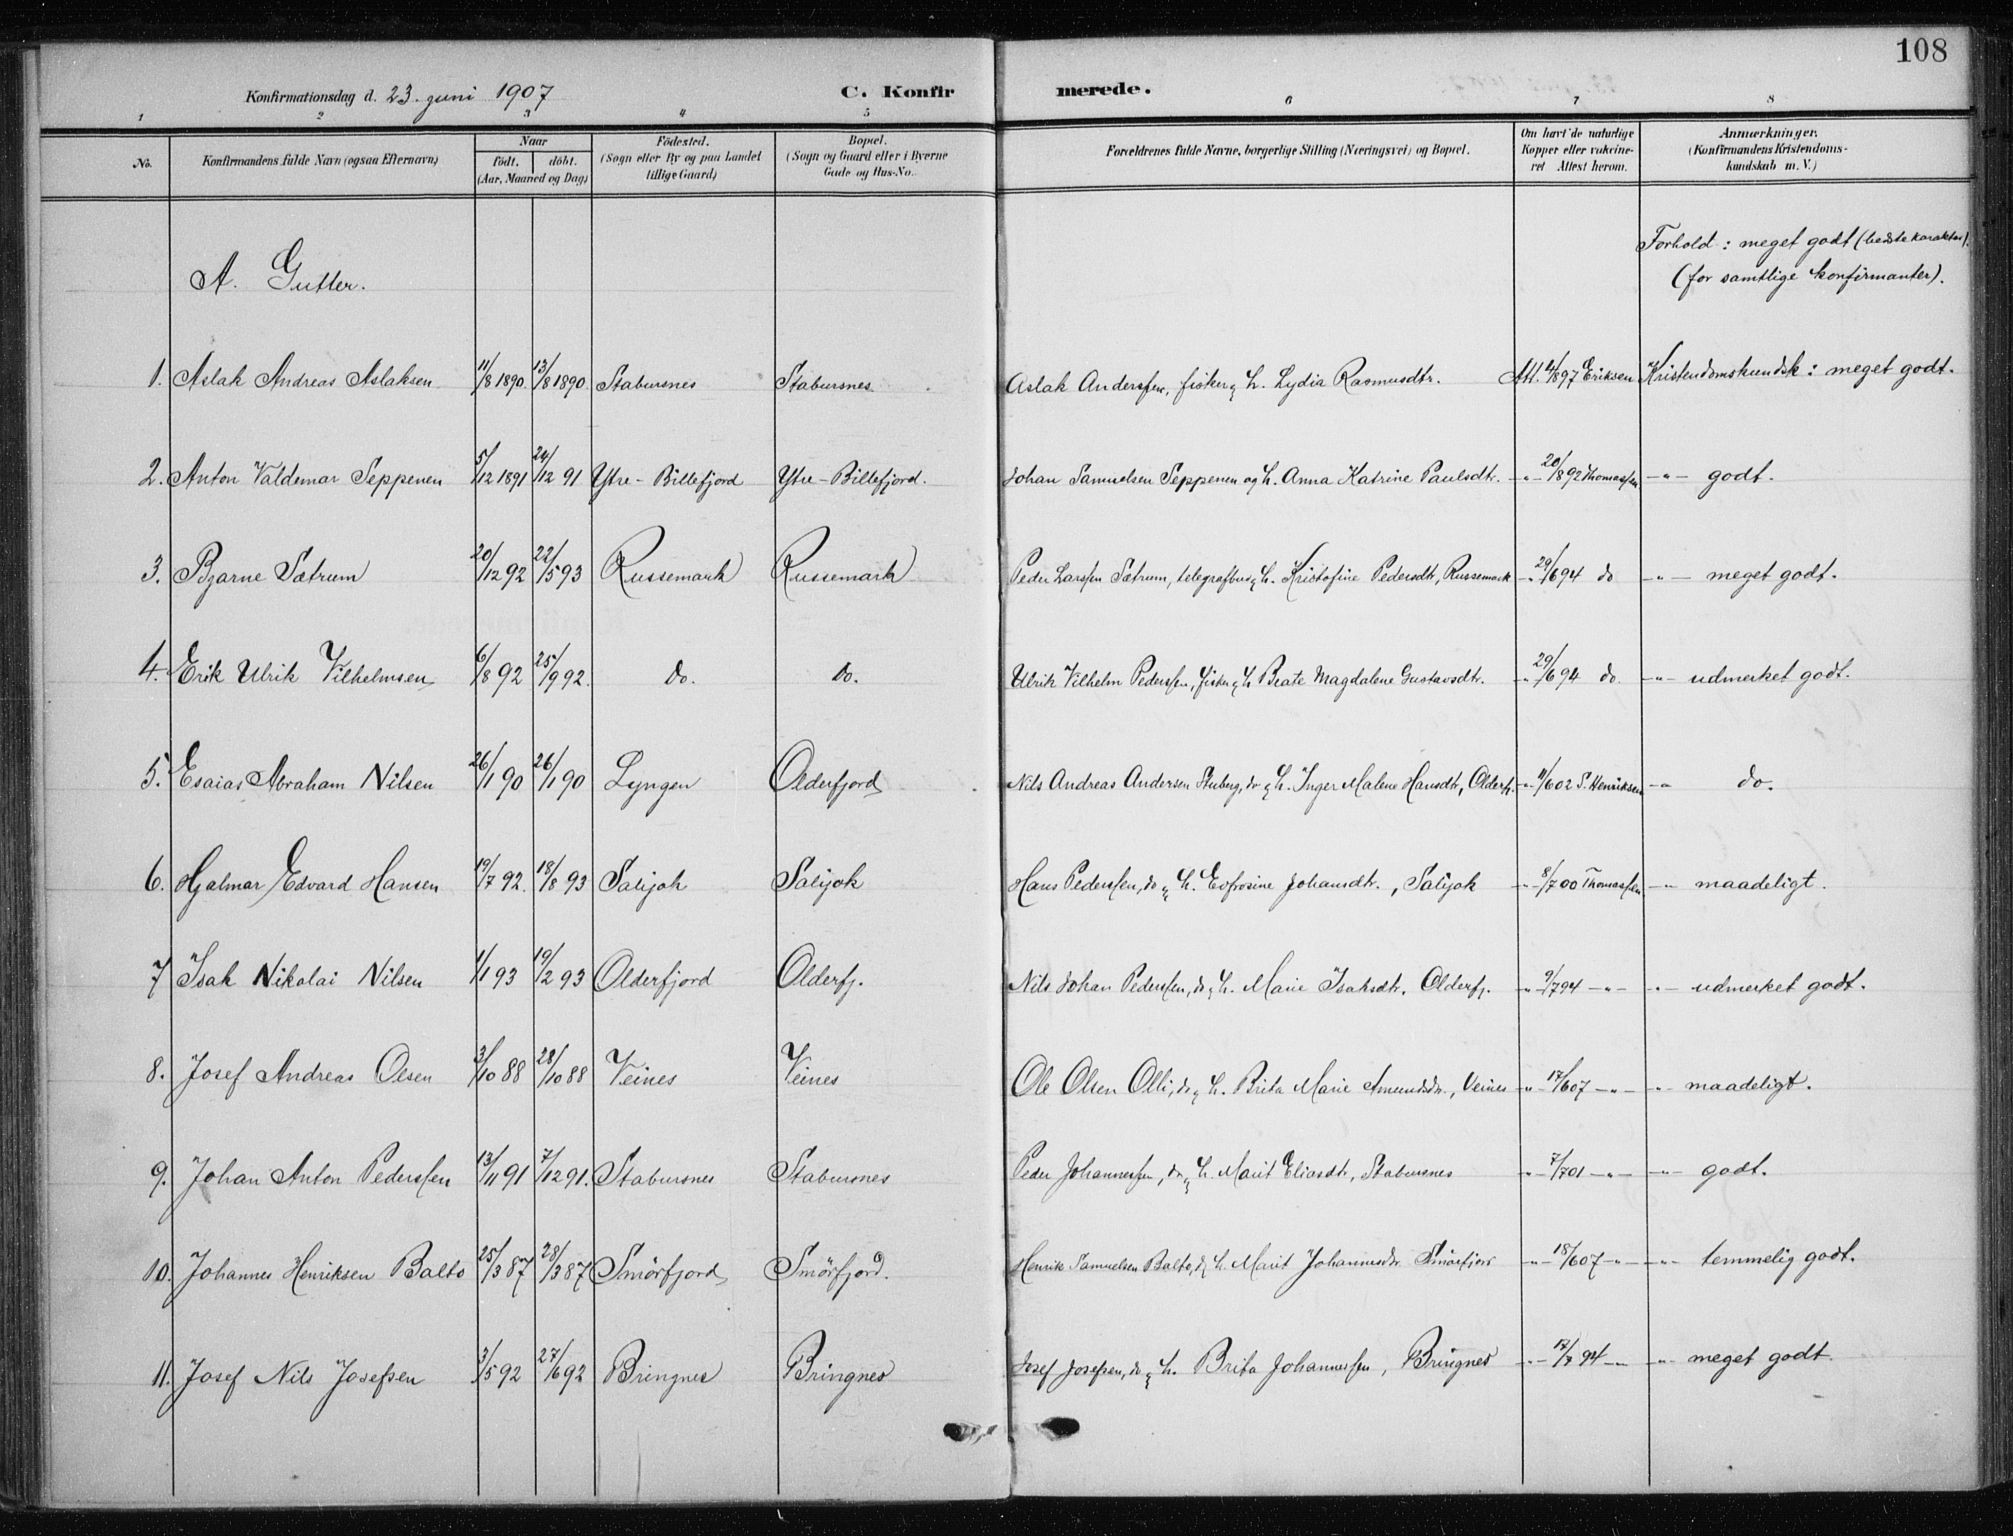 108
Konfirmationsdag d. 23. juni 1907 C. Konfirmerede.
1 2 3 4 5 6 7 8
No. Konfirmandens fulde Navn (ogsaa Efternavn) Naar födt. döbt. (Aar, Maaned og Dag) Födested. (Sogn eller By og paa Landet tillige Gaard) Bopæl. (Sogn og Gaard eller i Byerne Gade og Hus-No. Forældrenes fulde Navne, borgerlige Stilling (Næringsvei) og Bopæl. Om havt de naturlige Kopper eller vakcineret Attest herom. Anmærkninger. (Konfirmandens Kristendomskundskab m. V.)
Forhold: meget godt (bedste karakter).
A. Gutter. (for samtlige konfirmanter).
1. Aslak Andreas Aslaksen 11/8 1890. 13/8 1890. Stabursnes Stabursnes Aslak Anderssen, fisker og h. Lydia Rasmusdtr. Att. /897 Eriksen Kristendomskundsk: meget godt.
2. Anton Valdemar Seppenen 5/12 1891 24/12 91 Ytre-Billefjord Ytre-Billefjord. Johan Samuelsen Seppenen og h. Anna Katrine Paulsdtr. -"- 20/892 Thomassen -"- godt.
3. Bjarne Sætrum 20/12 92 22/5 93 Russemark Russemark Peder Larssen Sætrum, telegrafbud og h. Kristofine Pedersdtr, Russemark -"- 29/694 do -"- meget godt.
4. Erik Ulrik Vilhelmsen 6/8 92 25/9 92. do. do. Ulrik Vilhelm Pederssen, fisker og h Beate Magdalene Gustavsdtr. -"- 29/694 do. -"- udmerket godt.
5. Esaias Abraham Nilsen 26/1 90 26/1 90 Lyngen Olderfjord Nils Andreas Andersen Stuberg, do og h. Inger Malene Hansdtr, Olderfj. -"- 11/602 S. Henriksen -"- do.
6. Hjalmar Edvard Hansen 19/7 92. 18/8 93 Salijok Salijok Hans Pederssen, do og h. Eufrosine Johansdtr., Salijok -"- 8/700 Thomassen -"- maadeligt.
7 Isak Nikolai Nilsen 1/1 93 19/2 93 Olderfjord Olderfj. Nils Johan Pederssen, do og h. Marie Isaksdtr. Olderfj. -"- 9/794 -"- -"- udmerket godt.
8. Josef Andreas Olsen 3/10 88 28/10 88 Veines Veines Ole Olsen Olli, do og h. Brita Marie Amundsdtr., Veines -"- 17/607 -"- -"- maadeligt.
9. Johan Anton Pederssen 13/11 91 7/12 91. Stabursnes Stabursnes Peder Johannessen, do og h. Marit Eliasdtr, Stabursnes -"- 7/701 -"- -"- godt.
10. Johannes Henriksen Balto 25/3 87 28/3 87 Smörfjord Smörfjord. Henrik Samuelsen Balto, do og h. Marit Johannesdtr. Smörfjord -"- 18/607 -"- -"- temmelig godt.
11. Josef Nils Josefsen 3/5 92 27/6 92 Bringnes Bringnes Josef Josefsen, do og h. Brita Johannessen, Bringnes -"- 17/7 94 -"- -"- meget godt.